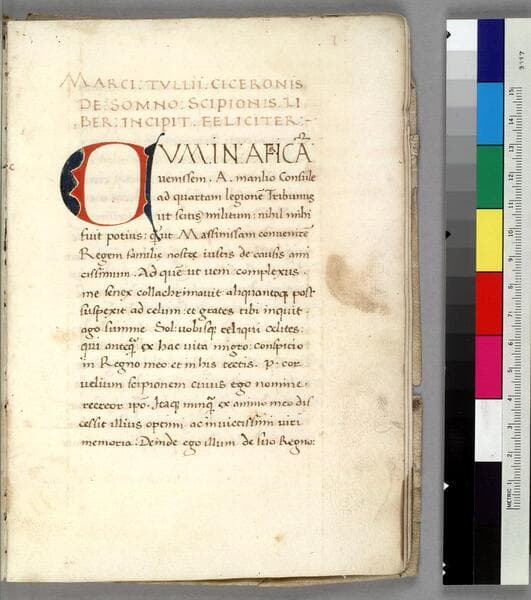 MARCI: TVLLII: CICERONIS
DE: SOMNO: SCIPIONIS LI
BER: INCIPIT: FELICITER:~
CVM IN APHICĀ
venissem. A. manlio Consule
ad quartam legionē Tribunus
ut scitis militum: nihil mihi
fuit potius: q̄ ut Massinissam convenirē
Regem familie nostre iustis de causis ami
cissimum. Ad quē ut veni complexus.
me senex collachrimavit aliquantoq; post
suspexit ad celum: et grates tibi inquit.
ago summe Sol: vobisq; reliqui celites:
qui anteq̄ ex hac vita migro: conspicio
in Regno meo et in his tectis. P. cor
nelium scipionem cuius ego nomine.
recreor ipō. Itaq; nunq̄ ex animo meo dis
cessit illius optimi ac invictissimi viri
memoria: Deinde ego illum de suo Regno: